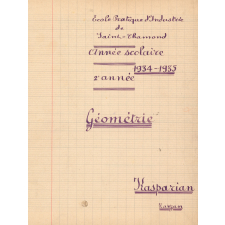 Ecole Pratique d'Industrie
de
Saint-Chamond
Année scolaire
1934-1935
2e année
Géométrie
Kasparian